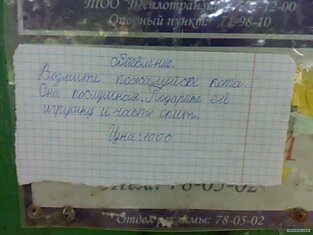 ТОО "Теплотранзит 12-00
Опорный пункт: 72-98-10
Обявление.
Возмите пожалуйста кота.
Она послушная. Подарите ей
игрушку и часто спит.
Цена: 1000
78-05-02
Отдел рекламы: 78-05-02